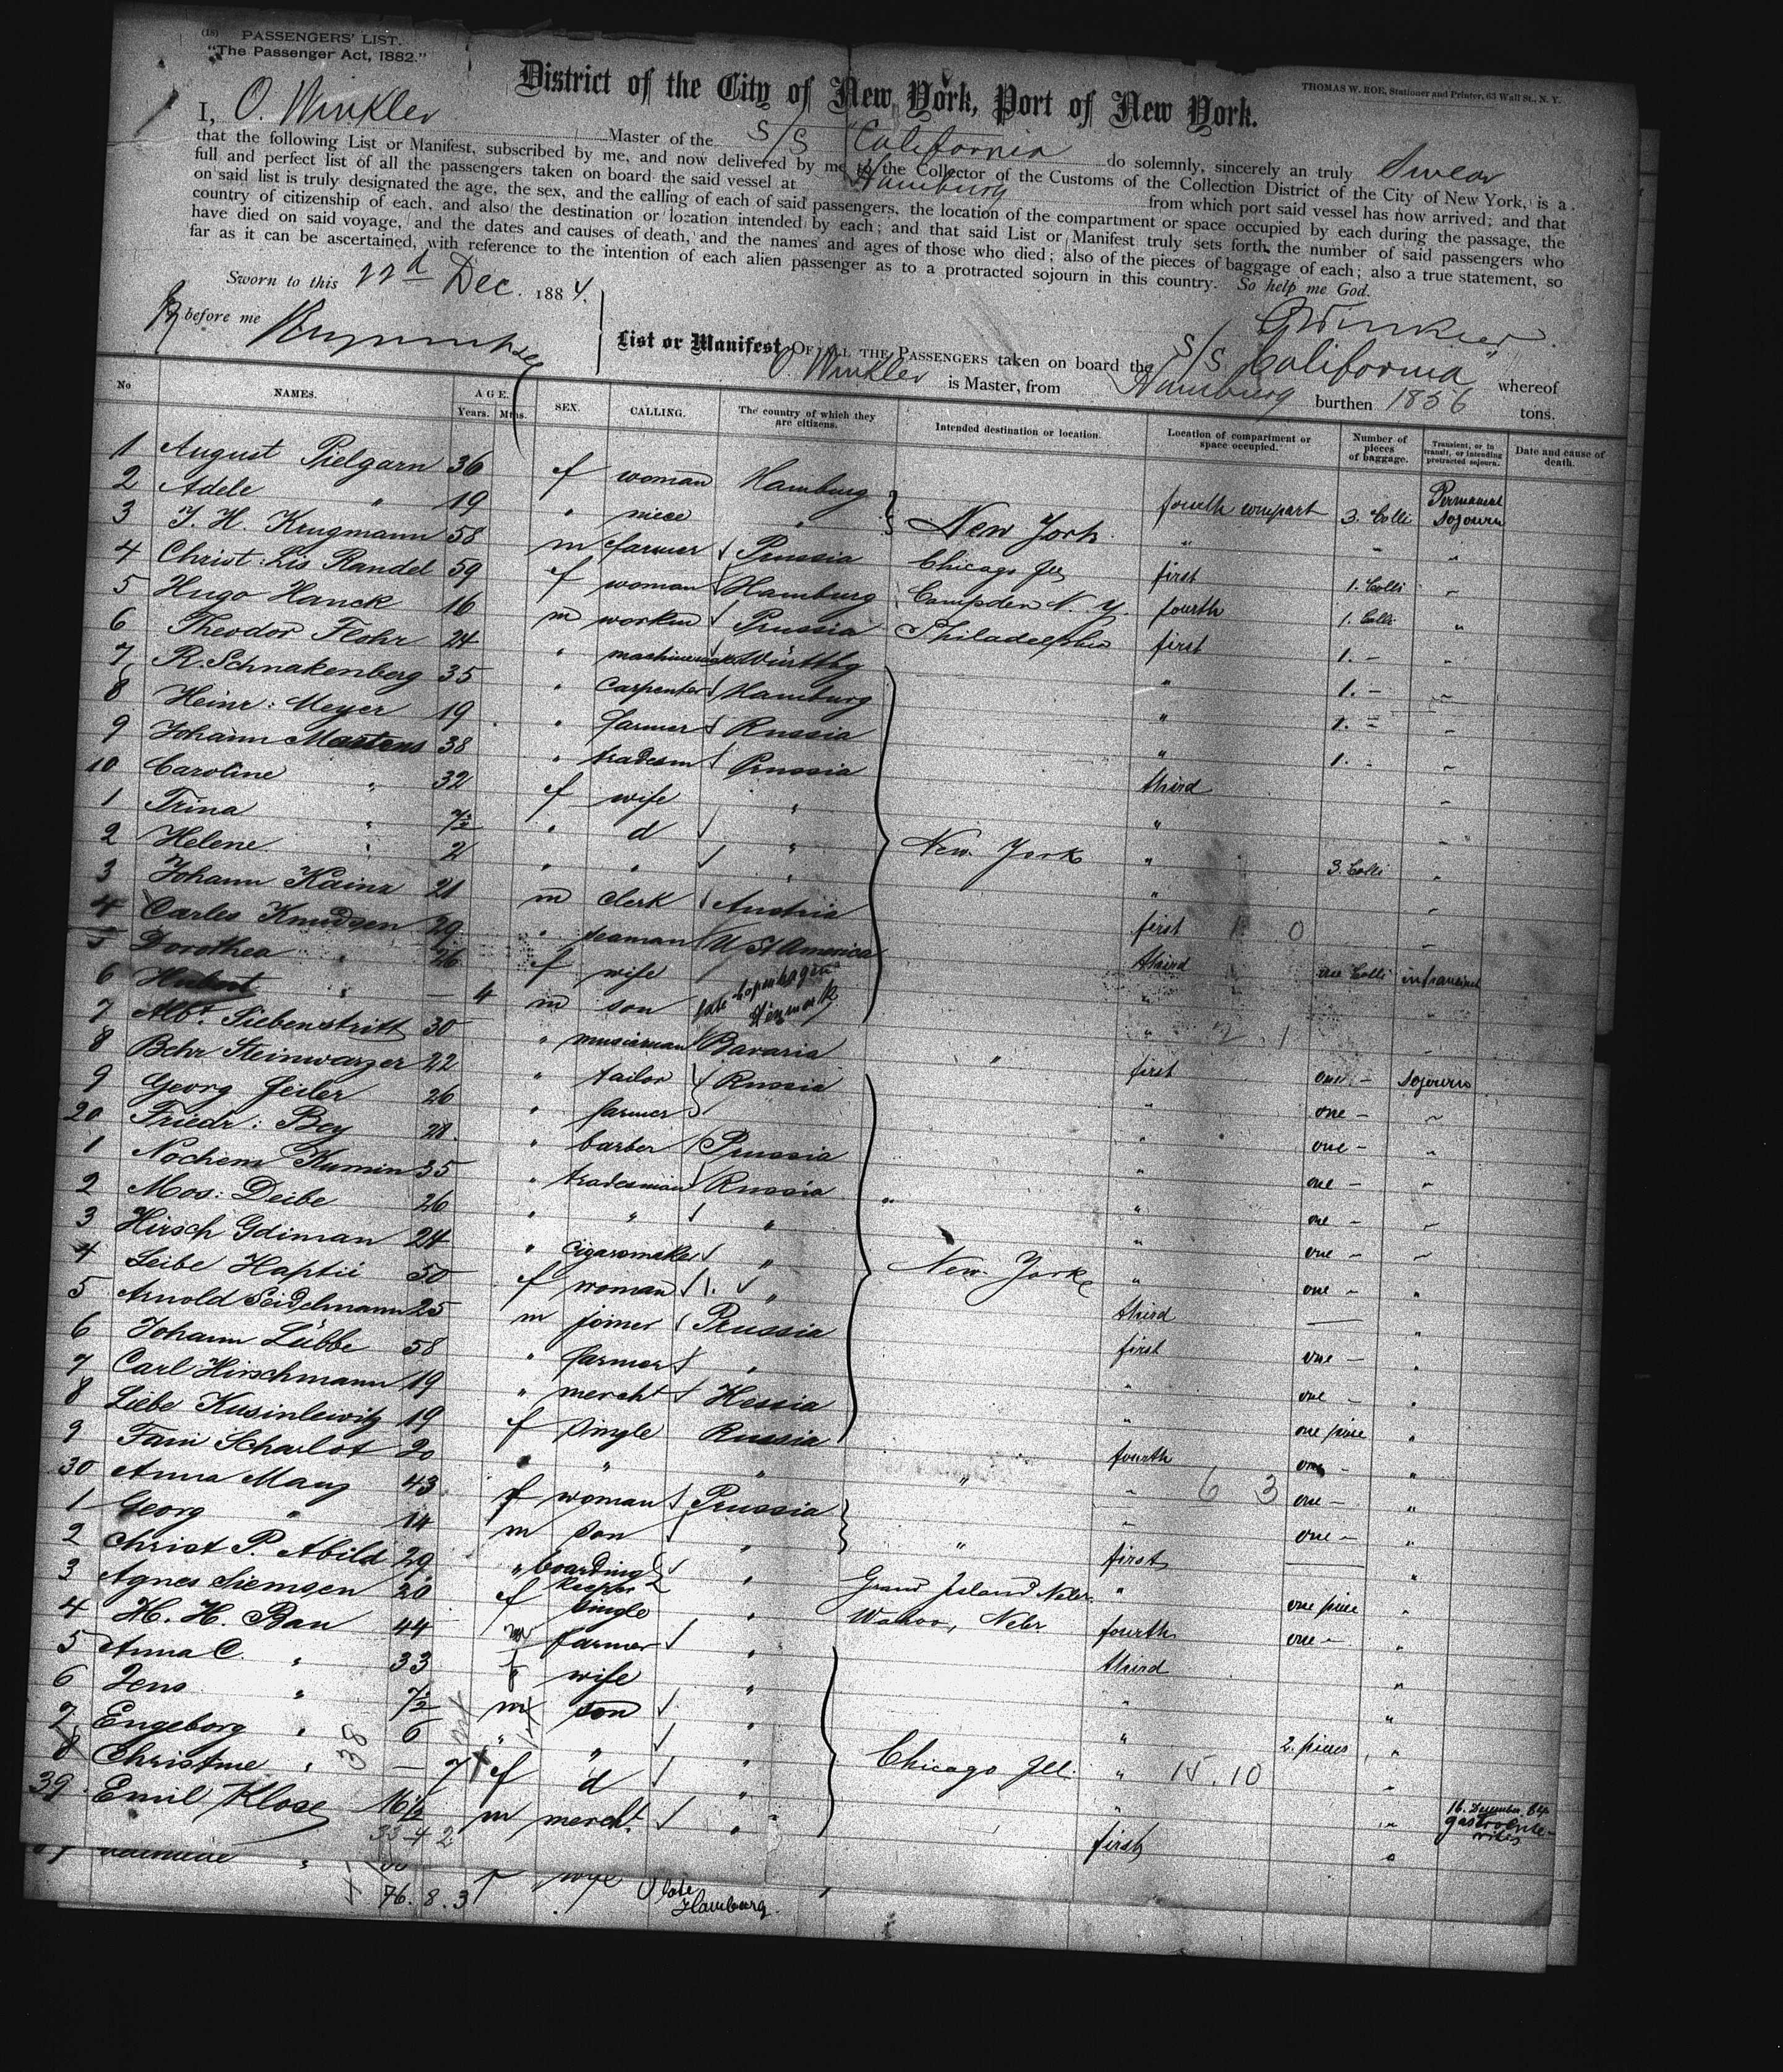 (18) PASSENGERS' LIST.
"The Passenger Act, 1882."
THOMAS W. ROE, Stationer and Printer, 63 Wall St., N. Y.
District of the City of New York, Port of New York.
I, O. Winkler Master of the S/S "California" do solemnly, sincerely an truly Swear
that the following List or Manifest, subscribed by me, and now delivered by me to the Collector of the Customs of the Collection District of the City of New York, is a
full and perfect list of all the passengers taken on board the said vessel at Hamburg from which port said vessel has now arrived; and that
on said list is truly designated the age, the sex, and the calling of each of said passengers, the location of the compartment or space occupied by each during the passage, the
country of citizenship of each, and also the destination or location intended by each; and that said List or Manifest truly sets forth the number of said passengers who
have died on said voyage, and the dates and causes of death, and the names and ages of those who died; also of the pieces of baggage of each; also a true statement, so
far as it can be ascertained, with reference to the intention of each alien passenger as to a protracted sojourn in this country. So help me God.
Sworn to this 22d Dec. 1884.
before me
O Winkler
List or Manifest OF ALL THE PASSENGERS taken on board the S/S California whereof
O. Winkler is Master, from Hamburg burthen 1856 tons.
No NAMES. AGE. Years. Mths. SEX. CALLING. The country of which they are citizens. Intended destination or location. Location of compartment or space occupied. Number of pieces of baggage. Transient, or in transit, or intending protracted sojourn. Date and cause of death.
1 August Pielgarn 36 f woman Hamburg fourth compart 3. Colli Permanent Sojourn
2 Adele " 19 " niece " New York " " "
3 J. H. Krugmann 58 m farmer Prussia Chicago Ill first 1. Colli "
4 Christ: Lis Randel 59 f woman Hamburg Campden N. Y fourth 1. Colli "
5 Hugo Hanck 16 m workm Prussia Philadelphia first 1. - "
6 Theodor Flohr 24 " Württbg " 1. - "
7 R. Schnakenberg 35 " carpenter Hamburg " 1. - "
8 Heinr: Meyer 19 " farmer Russia " 1. - "
9 Johann Martens 38 " tradesm Prussia third "
10 Caroline " 32 f wife " " "
1 Trina " 7½ " d " New York " 3 Colli "
2 Helene " 2 " " " " "
3 Johann Kainz 21 m clerk Austria first "
4 Carles Knudsen 29 " seaman U St America third one Colli in transient
5 Dorothea " 26 f wife late Copenhagen " "
6 Hubert " — 4 m son Denmark " "
7 Albt. Siebenstritt 30 " musicman Bavaria " first one - Sojourn
8 Behr Steinwarzer 22 " tailor Russia " one - "
9 Georg Jeiler 26 " farmer " one - "
20 Friedr: Bey 28 " barber Prussia " one - "
1 Nochem Kumin 35 " tradesman Russia " " one - "
2 Mos: Deibe 26 " " " " one - "
3 Hirsch Gdiman 24 " cigarsmaker " New York " one - "
4 Leibe Haptii 50 f woman " third — "
5 Arnold Seidelmann 25 m joiner Prussia first one - "
6 Johann Lübbe 58 " farmer " " one - "
7 Carl Hirschmann 19 " mercht Hessia " one piece "
8 Liebe Kusinlewitz 19 f single Russia fourth one - "
9 Fani Scharlot 20 " " " " " one - "
30 Anna Mang 43 f woman Prussia " one - "
1 Georg " 14 m son " " first — "
2 Christ P. Abild 29 " boarding keeper " Grand Island Nebr. " one piece "
3 Agnes Siemsen 20 f single " Wahoo, Nebr fourth one - "
4 H. H. Bau 44 m farmer " third "
5 Anna C. " 33 f wife " " "
6 Jens " 7½ m son " " 2. pieces "
7 Engeborg " 6 " " " Chicago Ill. " "
8 Christine " — 7 f d " " " 16. December 84 gastroenteritis
39 Emil Klose 16½ m mercht. " first "
33-42
wife late Hamburg.
76. 8. 3
1 0
2 1
6 3
15.10
38